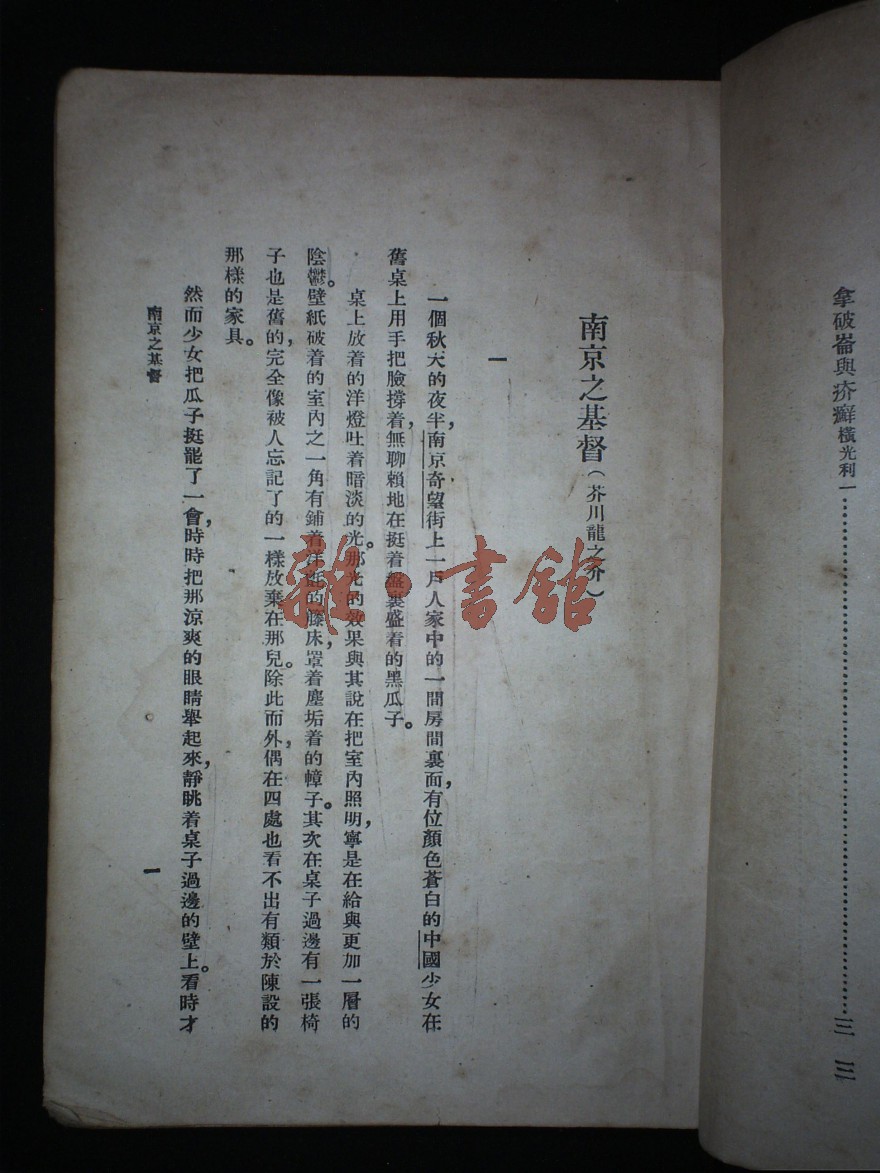 拿破崙與疥癬橫光利一……三三
南京之基督（芥川龍之介）
一
一個秋天的夜半，南京奇望街上一戶人家中的一間房間裏面，有位顏色蒼白的中國少女在
舊桌上用手把臉撐着，無聊賴地在挺着盤裏盛着的黑瓜子。
桌上放着的洋燈吐着暗淡的光。那光的效果與其說在把室內照明，寧是在給與更加一層的
陰鬱。壁紙破着的室內之一角有鋪着洋氈的籐床，罩着塵垢着的幛子。其次在桌子過邊有一張椅
子也是舊的，完全像被人忘記了的一樣放棄在那兒。除此而外，偶在四處也看不出有類於陳設的
那樣的家具。
然而少女把瓜子挺罷了一會，時時把那涼爽的眼睛舉起來，靜眺着桌子過邊的壁上。看時才
南京之基督
一
雜·書館